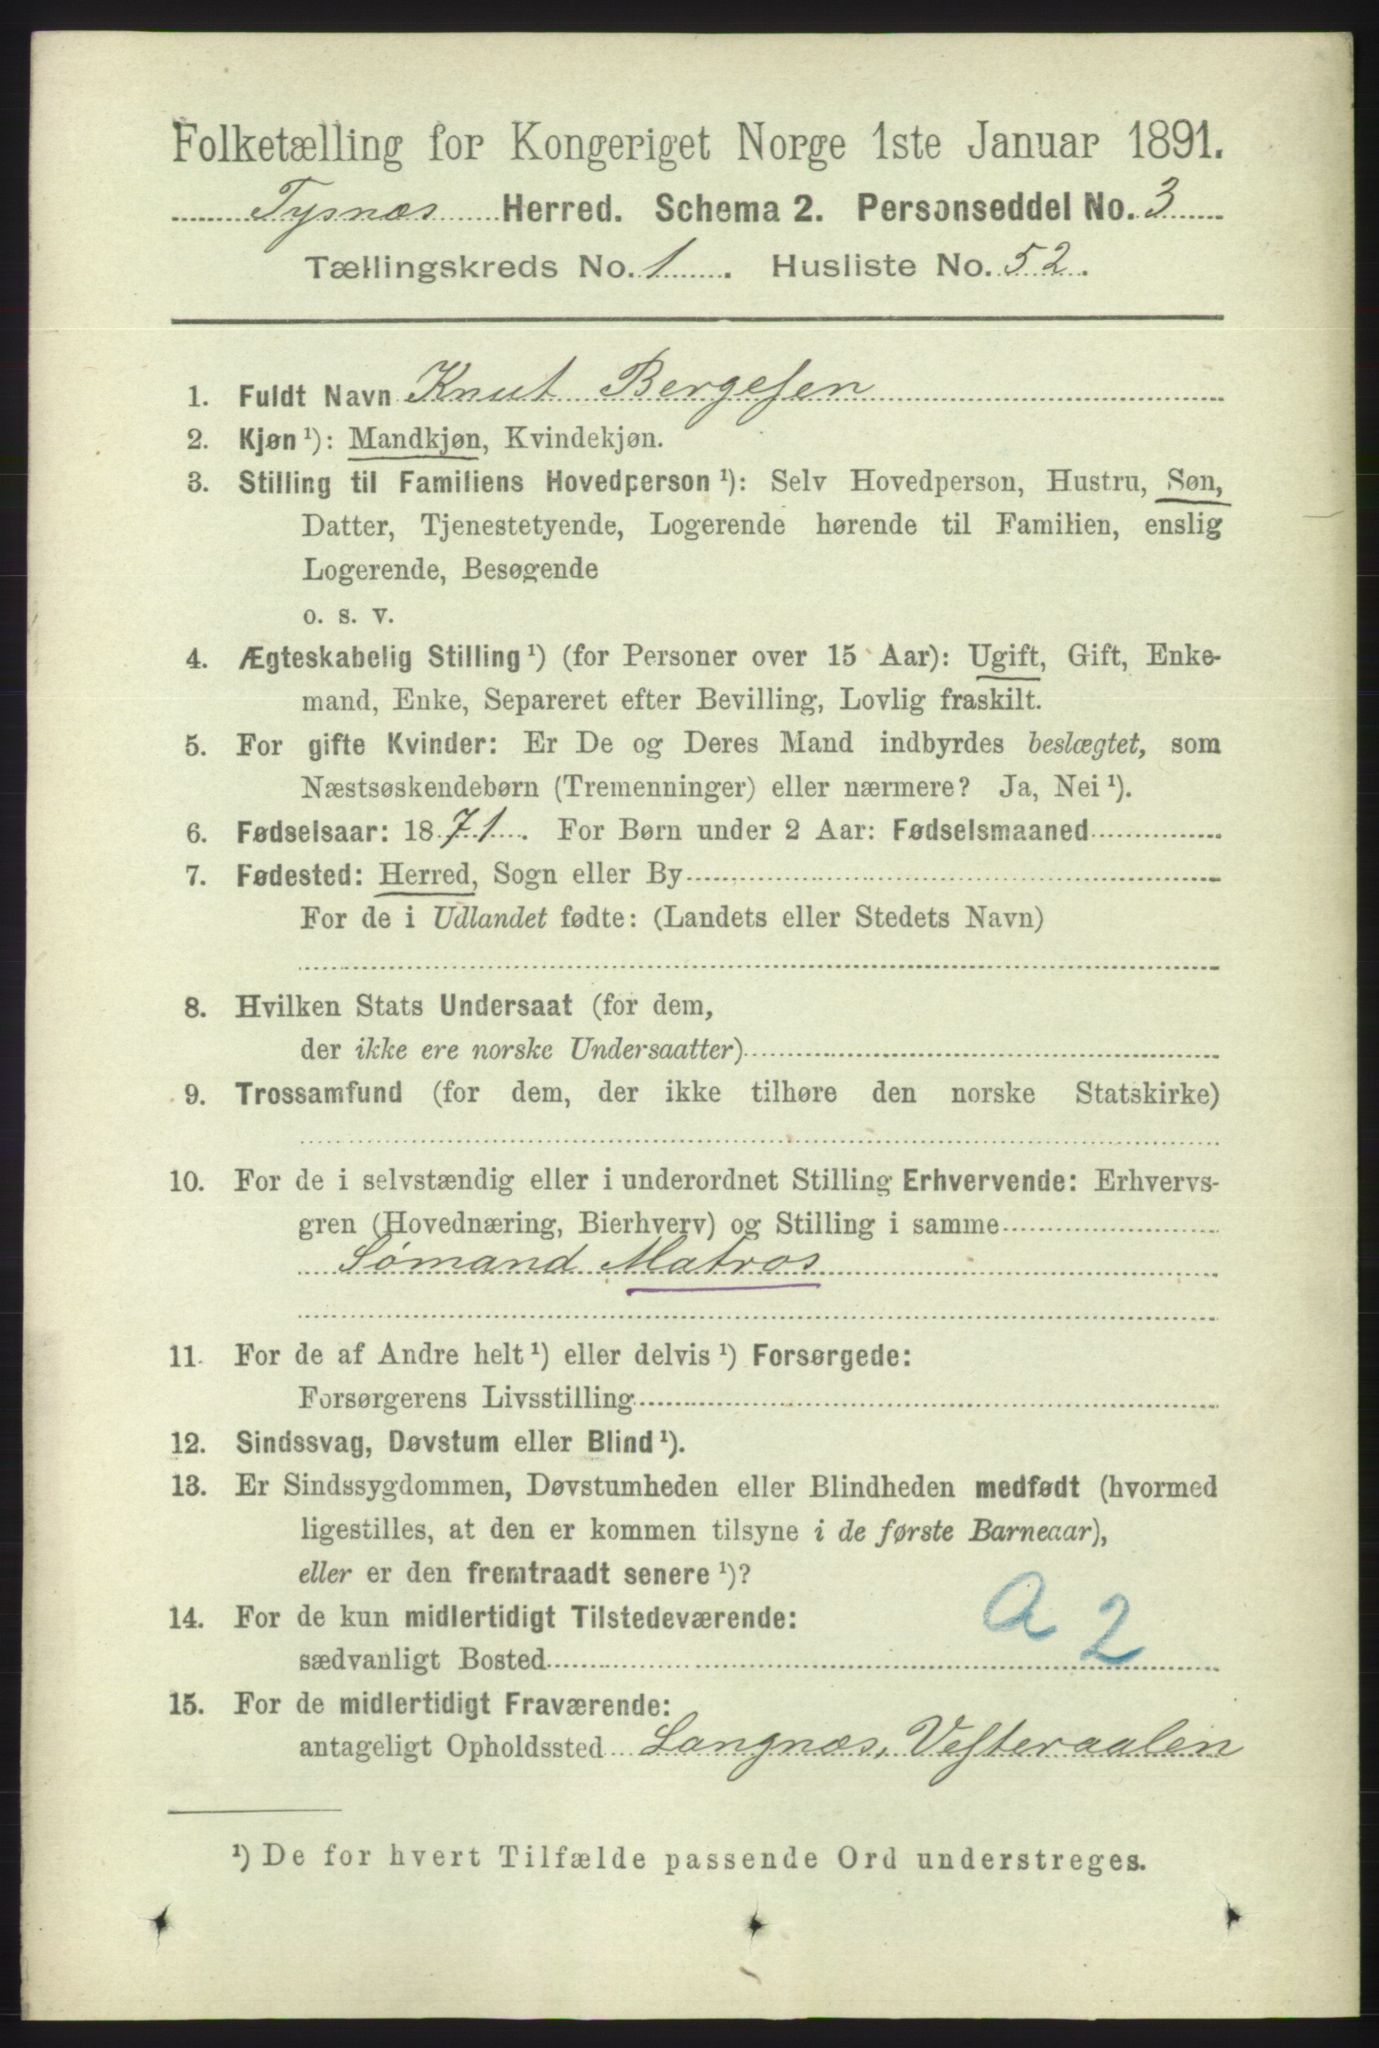 Folketælling for Kongeriget Norge 1ste Januar 1891.
Tysnæs Herred. Schema 2. Personseddel No. 3
Tællingskreds No. 1. Husliste No. 52.
1. Fuldt Navn Knut Bergesen
2. Kjøn ¹): Mandkjøn, Kvindekjøn.
3. Stilling til Familiens Hovedperson ¹): Selv Hovedperson, Hustru, Søn,
Datter, Tjenestetyende, Logerende hørende til Familien, enslig
Logerende, Besøgende
o. s. v.
4. Ægteskabelig Stilling ¹) (for Personer over 15 Aar): Ugift, Gift, Enke-
mand, Enke, Separeret efter Bevilling, Lovlig fraskilt.
5. For gifte Kvinder: Er De og Deres Mand indbyrdes beslægtet, som
Næstsøskendebørn (Tremenninger) eller nærmere? Ja, Nei ¹).
6. Fødselsaar: 1871. For Børn under 2 Aar: Fødselsmaaned
7. Fødested: Herred, Sogn eller By
For de i Udlandet fødte: (Landets eller Stedets Navn)
8. Hvilken Stats Undersaat (for dem,
der ikke ere norske Undersaatter)
9. Trossamfund (for dem, der ikke tilhøre den norske Statskirke)
10. For de i selvstændig eller i underordnet Stilling Erhvervende: Erhvervs-
gren (Hovednæring, Bierhverv) og Stilling i samme
Sømand Matros
11. For de af Andre helt ¹) eller delvis ¹) Forsørgede:
Forsørgerens Livsstilling
12. Sindssvag, Døvstum eller Blind ¹).
13. Er Sindssygdommen, Døvstumheden eller Blindheden medfødt (hvormed
ligestilles, at den er kommen tilsyne i de første Barneaar),
eller er den fremtraadt senere ¹)?
14. For de kun midlertidigt Tilstedeværende:
a 2
sædvanligt Bosted
15. For de midlertidigt Fraværende:
antageligt Opholdssted Langnæs, Vesteraalen
¹) De for hvert Tilfælde passende Ord understreges.